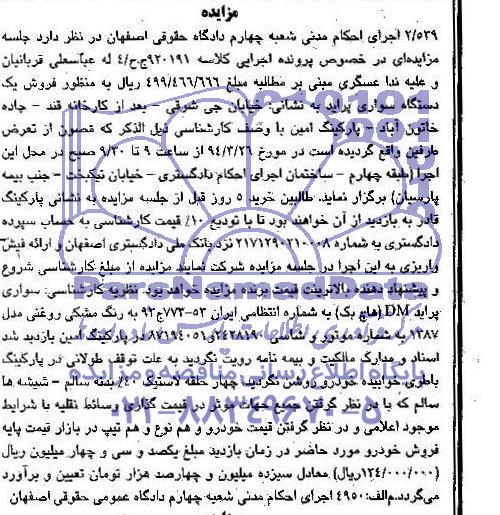 مزایده
۲/۵۳۹ اجرای احکام مدنی شعبه چهارم دادگاه حقوقی اصفهان در نظر دارد جلسه
مزایده‌ای در خصوص پرونده اجرایی کلاسه ۹۲۰۱۹۱ج‌.ح/۴ له عباسعلی قربانیان
و علیه ندا عسگری مبنی بر مطالبه مبلغ ۴۹۹/۴۶۶/۶۶۶ ریال به منظور فروش یک
دستگاه سواری پراید به نشانی: خیابان جی شرقی - بعد از کارخانه قند - جاده
خاتون آباد - پارکینگ امین با وصف کارشناسی ذیل الذکر که مصون از تعرض
طرفین واقع گردیده است در مورخ ۹۴/۳/۲۶ از ساعت ۹ تا ۹/۳۰ صبح در محل این
اجرا (طبقه چهارم - ساختمان اجرای احکام دادگستری - خیابان نیکبخت - جنب بیمه
پارسیان) برگزار نماید. طالبین خرید ۵ روز قبل از جلسه مزایده به نشانی پارکینگ
قادر به بازدید از آن خواهند بود تا با تودیع ۱۰٪ قیمت کارشناسی به حساب سپرده
دادگستری به شماره ۲۱۷۱۲۹۰۲۱۰۰۰۸ نزد بانک ملی دادگستری اصفهان و ارائه فیش
واریزی به این اجرا در جلسه مزایده شرکت نمایند. مزایده از مبلغ کارشناسی شروع
و پیشنهاد دهنده بالاترین قیمت برنده مزایده خواهد بود. نظریه کارشناسی: سواری
پراید DM (هاچ بک) به شماره انتظامی ایران ۵۳-۷۷۳ج۹۲ به رنگ مشکی روغنی مدل
۱۳۸۷ به شماره موتور و شاسی ۲۴۲۸۱۹۰ و ۸۷۱۹۴۰۵۱ در پارکینگ امین بازدید شد
اسناد و مدارک مالکیت و بیمه نامه رویت نگردید به علت توقف طولانی در پارکینگ
باطری خوابیده خودرو روشن نگردید. چهار حلقه لاستیک ۴۰٪ بدنه سالم - شیشه ها
سالم که با در نظر گرفتن جمیع جهات موثر در قیمت گذاری وسائط نقلیه با شرایط
موجود اعلامی و در نظر گرفتن قیمت خودرو و هم نوع و هم تیپ در بازار قیمت پایه
فروش خودرو مورد حاضر در زمان بازدید مبلغ یکصد و سی و چهار میلیون ریال
(۱۳۴/۰۰۰/۰۰۰ریال) معادل سیزده میلیون و چهارصد هزار تومان تعیین و برآورد
می‌گردد.م‌الف: ۴۹۵۰ اجرای احکام مدنی شعبه چهارم دادگاه عمومی حقوقی اصفهان
ParsNamadData
پایگاه اطلاع رسانی مناقصه و مزایده
۰۲۱-۸۸۳۴۹۶۷۰-۵